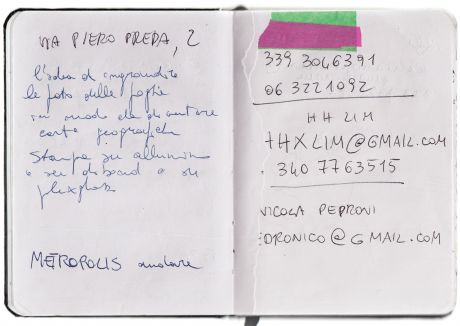 VIA PIERO PREDA, 2
l'idea di ingrandire
le foto delle foglie
in modo che diventino
carte geografiche
Stampa su alluminio
o su dibond o su
plexiglass
METROPOLIS andare
339 3046391
06 3221092
HH LIM
HHXLIM@GMAIL.COM
340 7763515
NICOLA PEDRONI
EDRONICO@GMAIL.COM